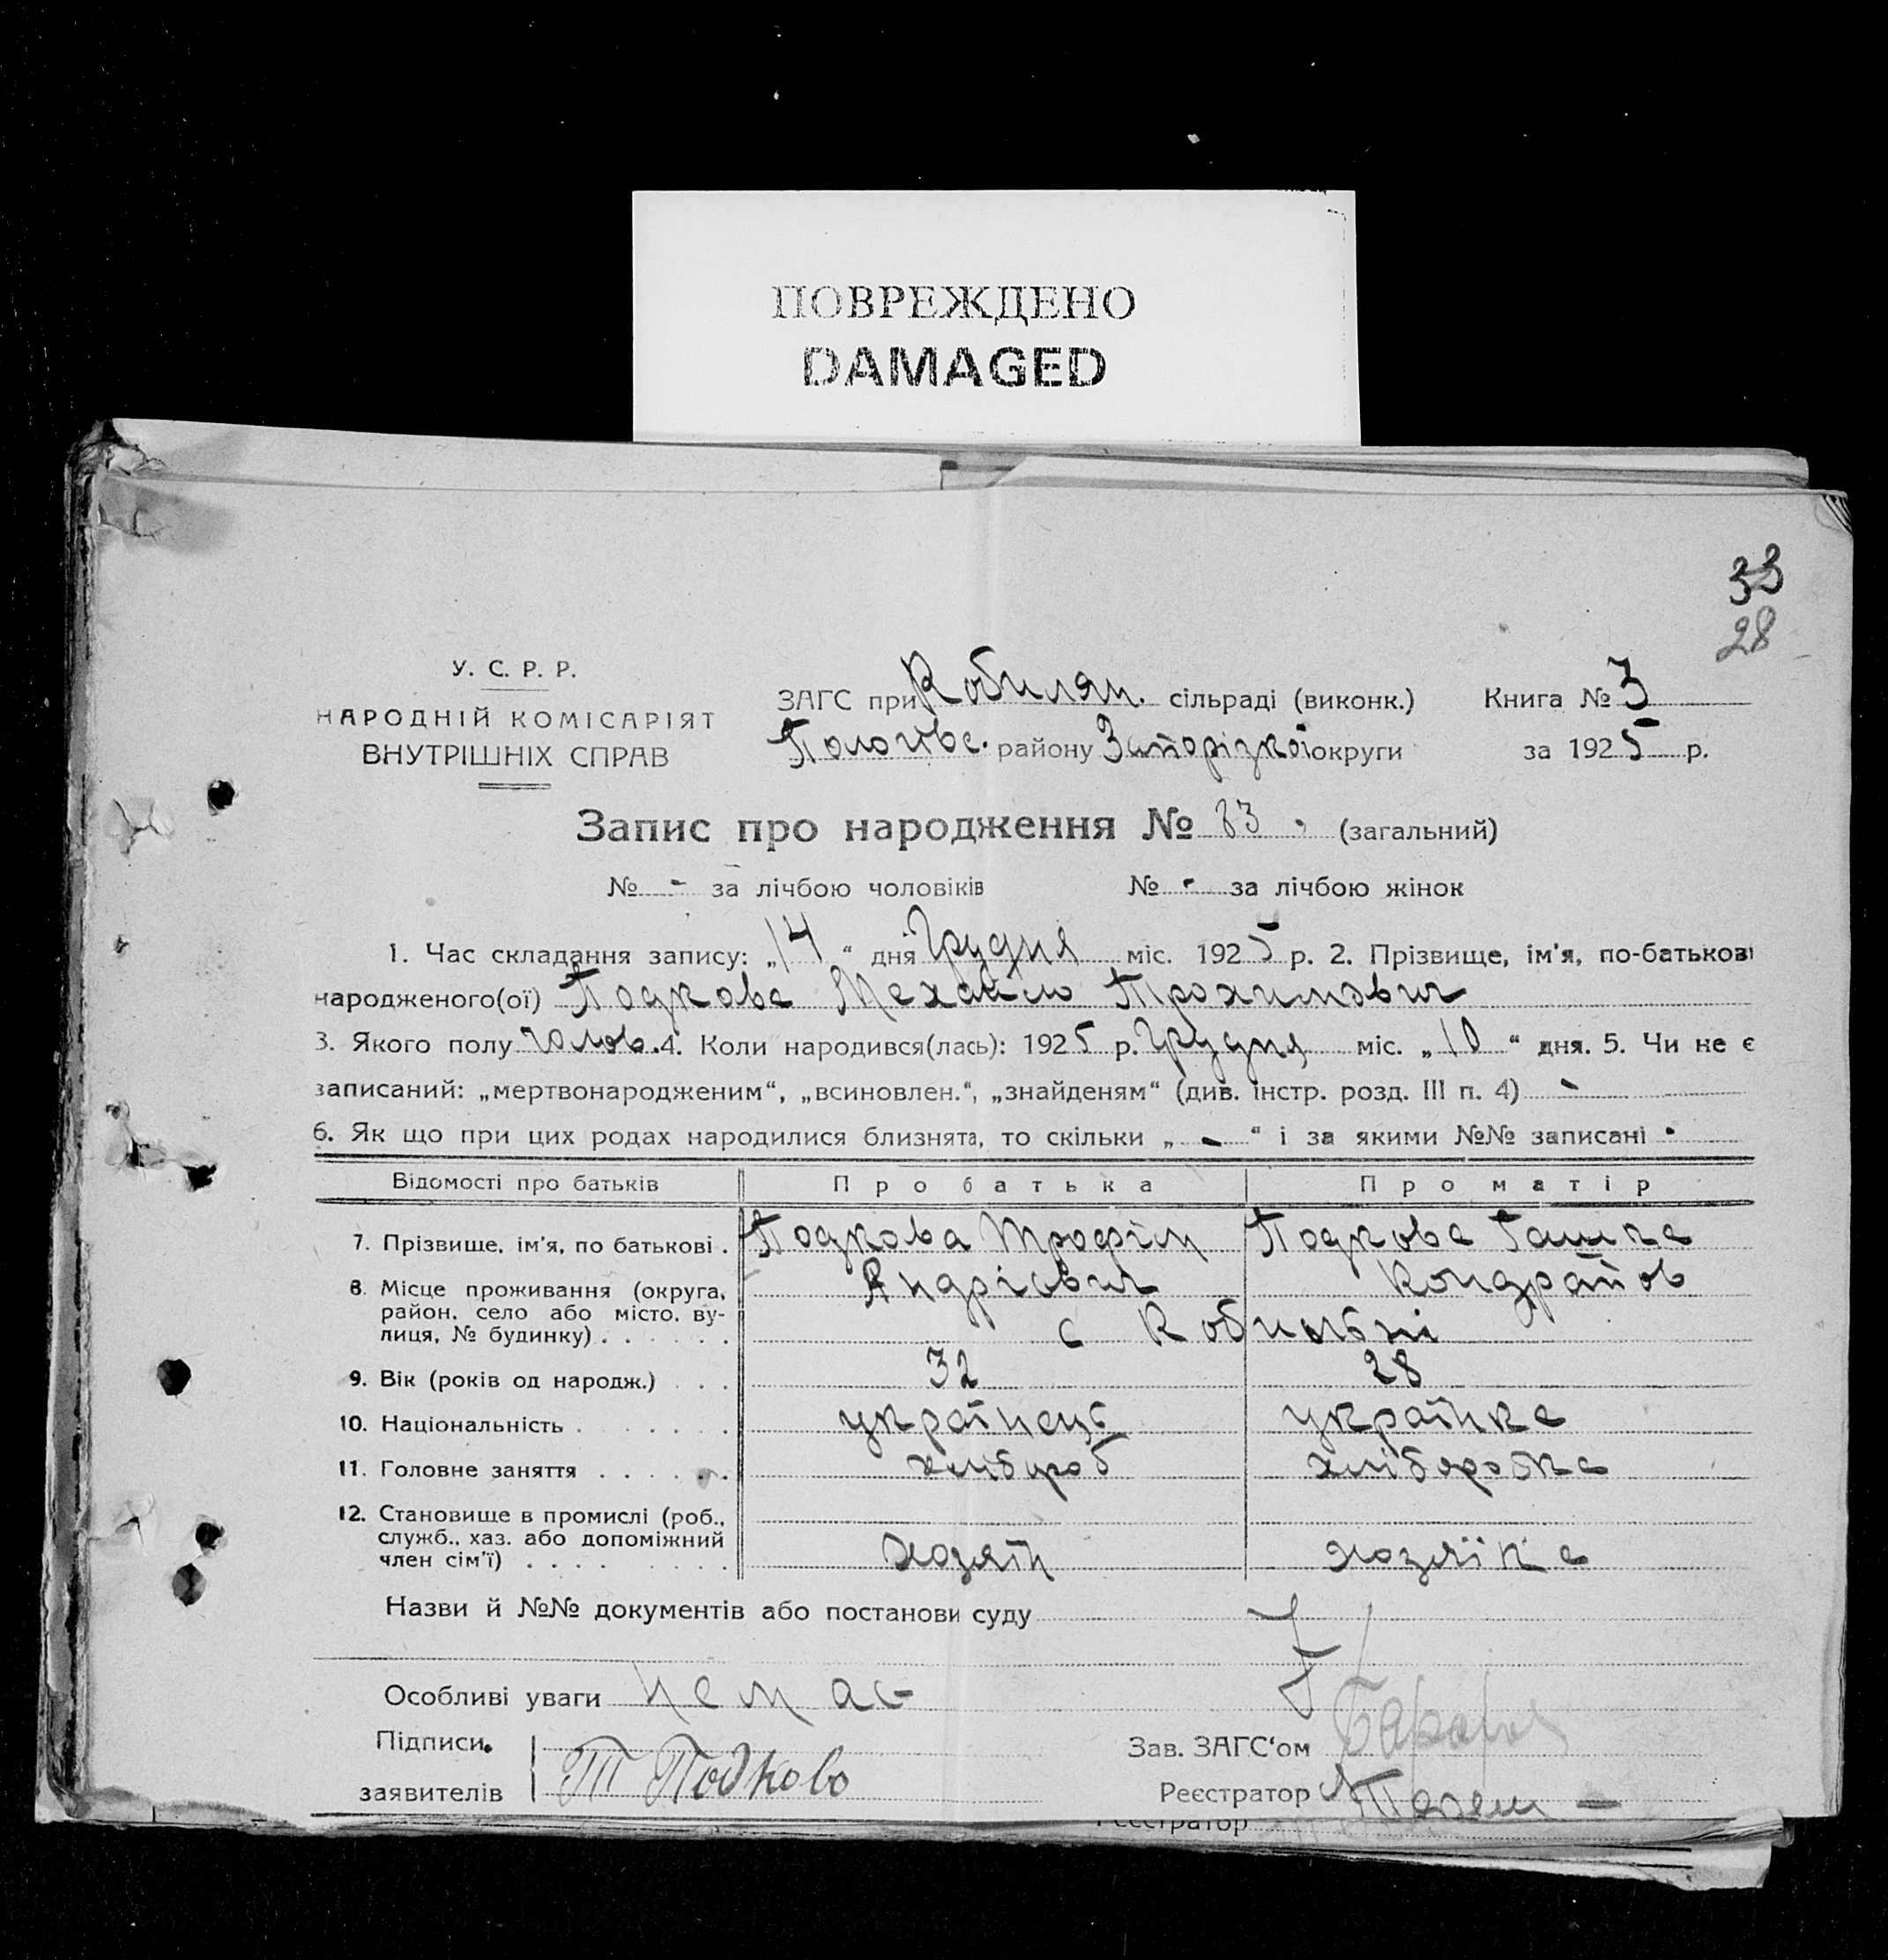 ПОВРЕЖДЕНО
DAMAGED
33
28
У. С. Р. Р.
НАРОДНІЙ КОМІСАРІЯТ
ВНУТРІШНІХ СПРАВ
ЗАГС при Кобилян. сільраді (виконк.) Книга № 3
Пологівс. району Запорізкої округи за 1925 р.
Запис про народження № 83. (загальний)
№ - за лічбою чоловіків № - за лічбою жінок
1. Час складання запису: „14“ дня Грудня міс. 1925 р. 2. Прізвище, ім'я, по-батькові
народженого(ої) Подкова Михайло Трохимович
3. Якого полу чолов. 4. Коли народився(лась): 1925 р. Грудня міс. „10“ дня. 5. Чи не є
записаний: „мертвонародженим“, „всиновлен.“, „знайденям“ (див. інстр. розд. III п. 4) -
6. Як що при цих родах народилися близнята, то скільки „-“ і за якими №№ записані -
Відомості про батьків Про батька Про матір
7. Прізвище, ім'я, по батькові. Подкова Трофім Андрієвич Подкова Гашка Кондратов
8. Місце проживання (округа, район, село або місто, вулиця, № будинку) с Кобильні
9. Вік (років од народж.) 32 28
10. Національність українець українка
11. Головне заняття хлібороб хліборобка
12. Становище в промислі (роб., служб., хаз. або допоміжний член сім'ї) хозяїн хозяїка
Назви й №№ документів або постанови суду
Особливі уваги немає
Підписи
заявителів Т Подково
Зав. ЗАГС'ом
Реєстратор
Реєстратор